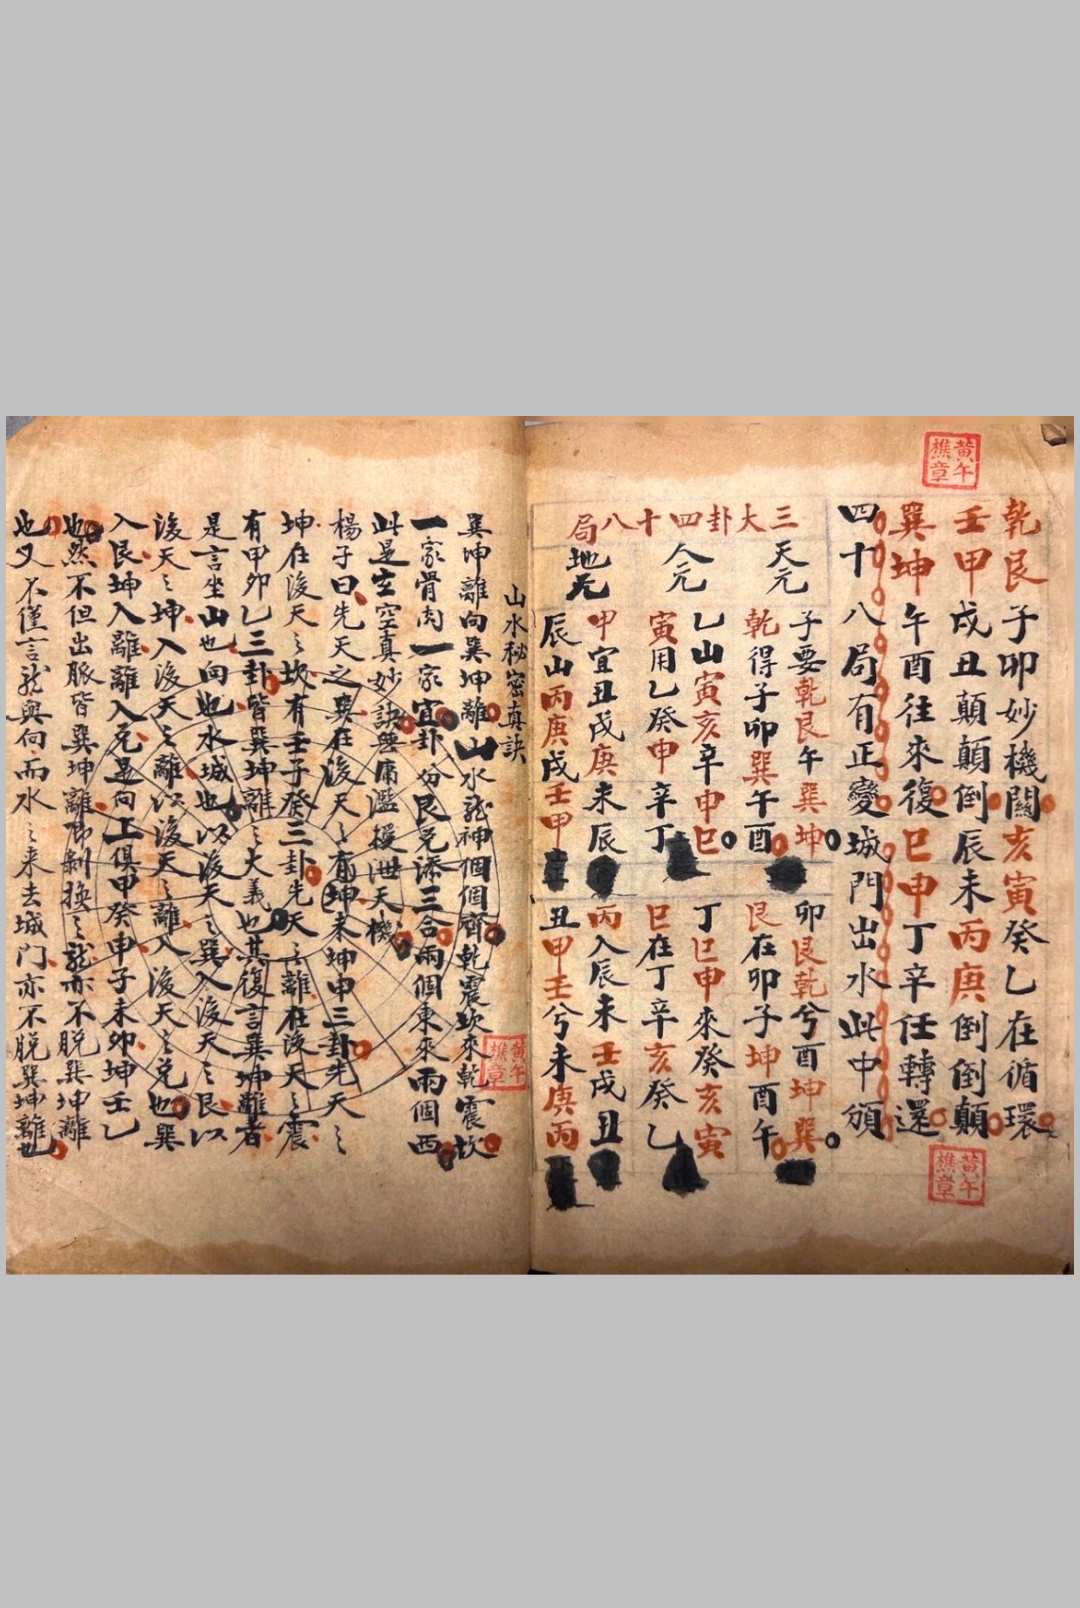 乾艮子卯妙機關亥寅癸乙在循環
壬甲戌丑顛顛倒辰未丙庚倒倒顛
巽坤午酉往來復巳申丁辛任轉還
四十八局有正變城門出水此中頒
三大卦四十八局
天元
子要乾艮午巽坤
卯艮乾兮酉坤巽
乾得子卯巽午酉
艮在卯子坤酉午
人元
乙山寅亥辛申巳
丁巳申來癸亥寅
寅用乙癸申辛丁
巳在丁辛亥癸乙
地元
甲宜丑戌庚未辰
丙入辰未壬戌丑
辰山丙庚戌壬甲
丑甲壬兮未庚丙
黃午樵章
黃午樵章
山水秘密真訣
巽坤離向巽坤離山水龍神個個齊乾震坎來乾震坎
一家骨肉一家宜卦份艮兌添三合兩個東來兩個西
此是玄空真妙訣無庸濫授泄天機
楊子曰先天之巽在後天之有坤未坤申三卦先天之
坤在後天之坎有壬子癸三卦先天之離在後天之震
有甲卯乙三卦皆巽坤離之大義也其復言巽坤離者
是言坐山也向也水城也以後天之巽入後天之艮以
後天之坤入後天之離以後天之離入後天之兌也巽
入艮坤入離離入兌是向上俱甲癸申子未卯坤壬乙
也然不但出脈皆巽坤離即剝換之龍亦不脫巽坤離
也又不僅言龍與向而水之來去城門亦不脫巽坤離也
黃午樵章